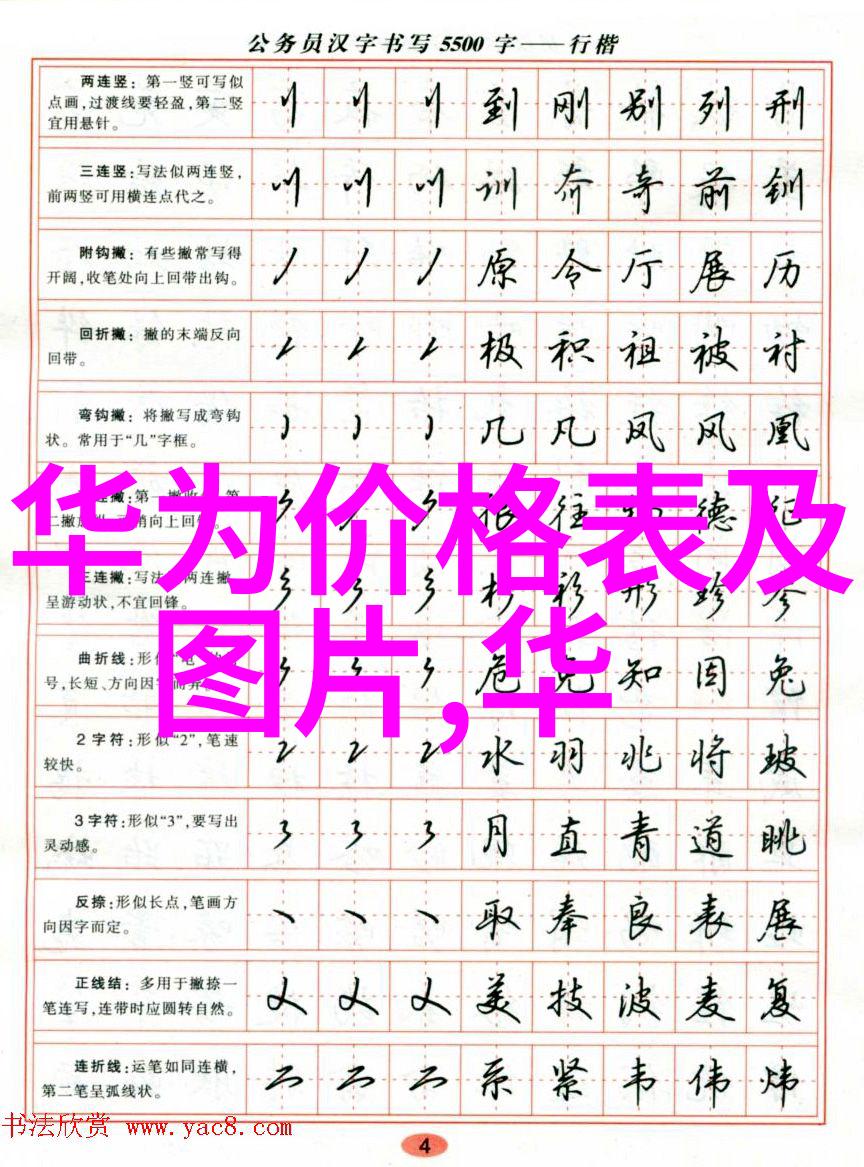 公务员汉字书写5500字——行楷
两连竖：第一竖可写似
点画，过渡线要轻盈，第二竖
宜用悬针。
到 刚 别 列 刑
三连竖：写法似两连竖，
前两竖可用横连点代之。
训 奔 奇 前 钏
附钩撇：有些撇常写得
开阔，收笔处向上回带出钩。
原 令 厅 展 历
回折撇：撇的末端反向
回带。
极 积 祖 被 衬
弯钩撇：将撇写成弯钩
状。常用于“几”字框。
几 凡 凤 风 凰
华为价格表及
图片,华
很 往 德
三连撇：写法 两连撇
呈游动状，不宜回锋。
杉 衫 形 珍 参
曲折线：形
号，长短、方向因
危 免 知 因 兔
2字符：形似“2”，笔速
较快。
水 羽 兆 将 玻
3字符：形似“3”，要写出
灵动感。
月 直 青 道 眺
反捺：形似长点，笔画方
向因字而定。
取 奉 良 表 展
正线结：多用于撇捺一
笔连写，连带时应圆转自然。
美 技 波 麦 复
连折线：运笔如同连横，
第二笔呈弧线状。
系 紧 韦 伟 炜
书法欣赏 www.yac8.com
4